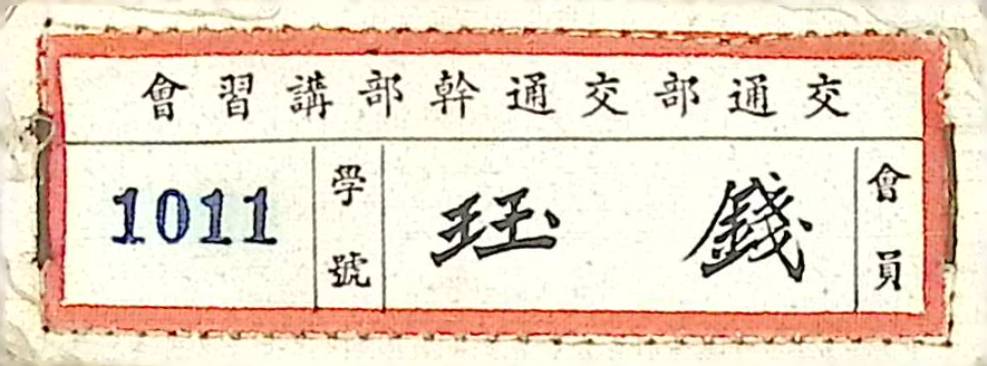 交通部交通幹部講習會
會員
錢珏
學號
1011